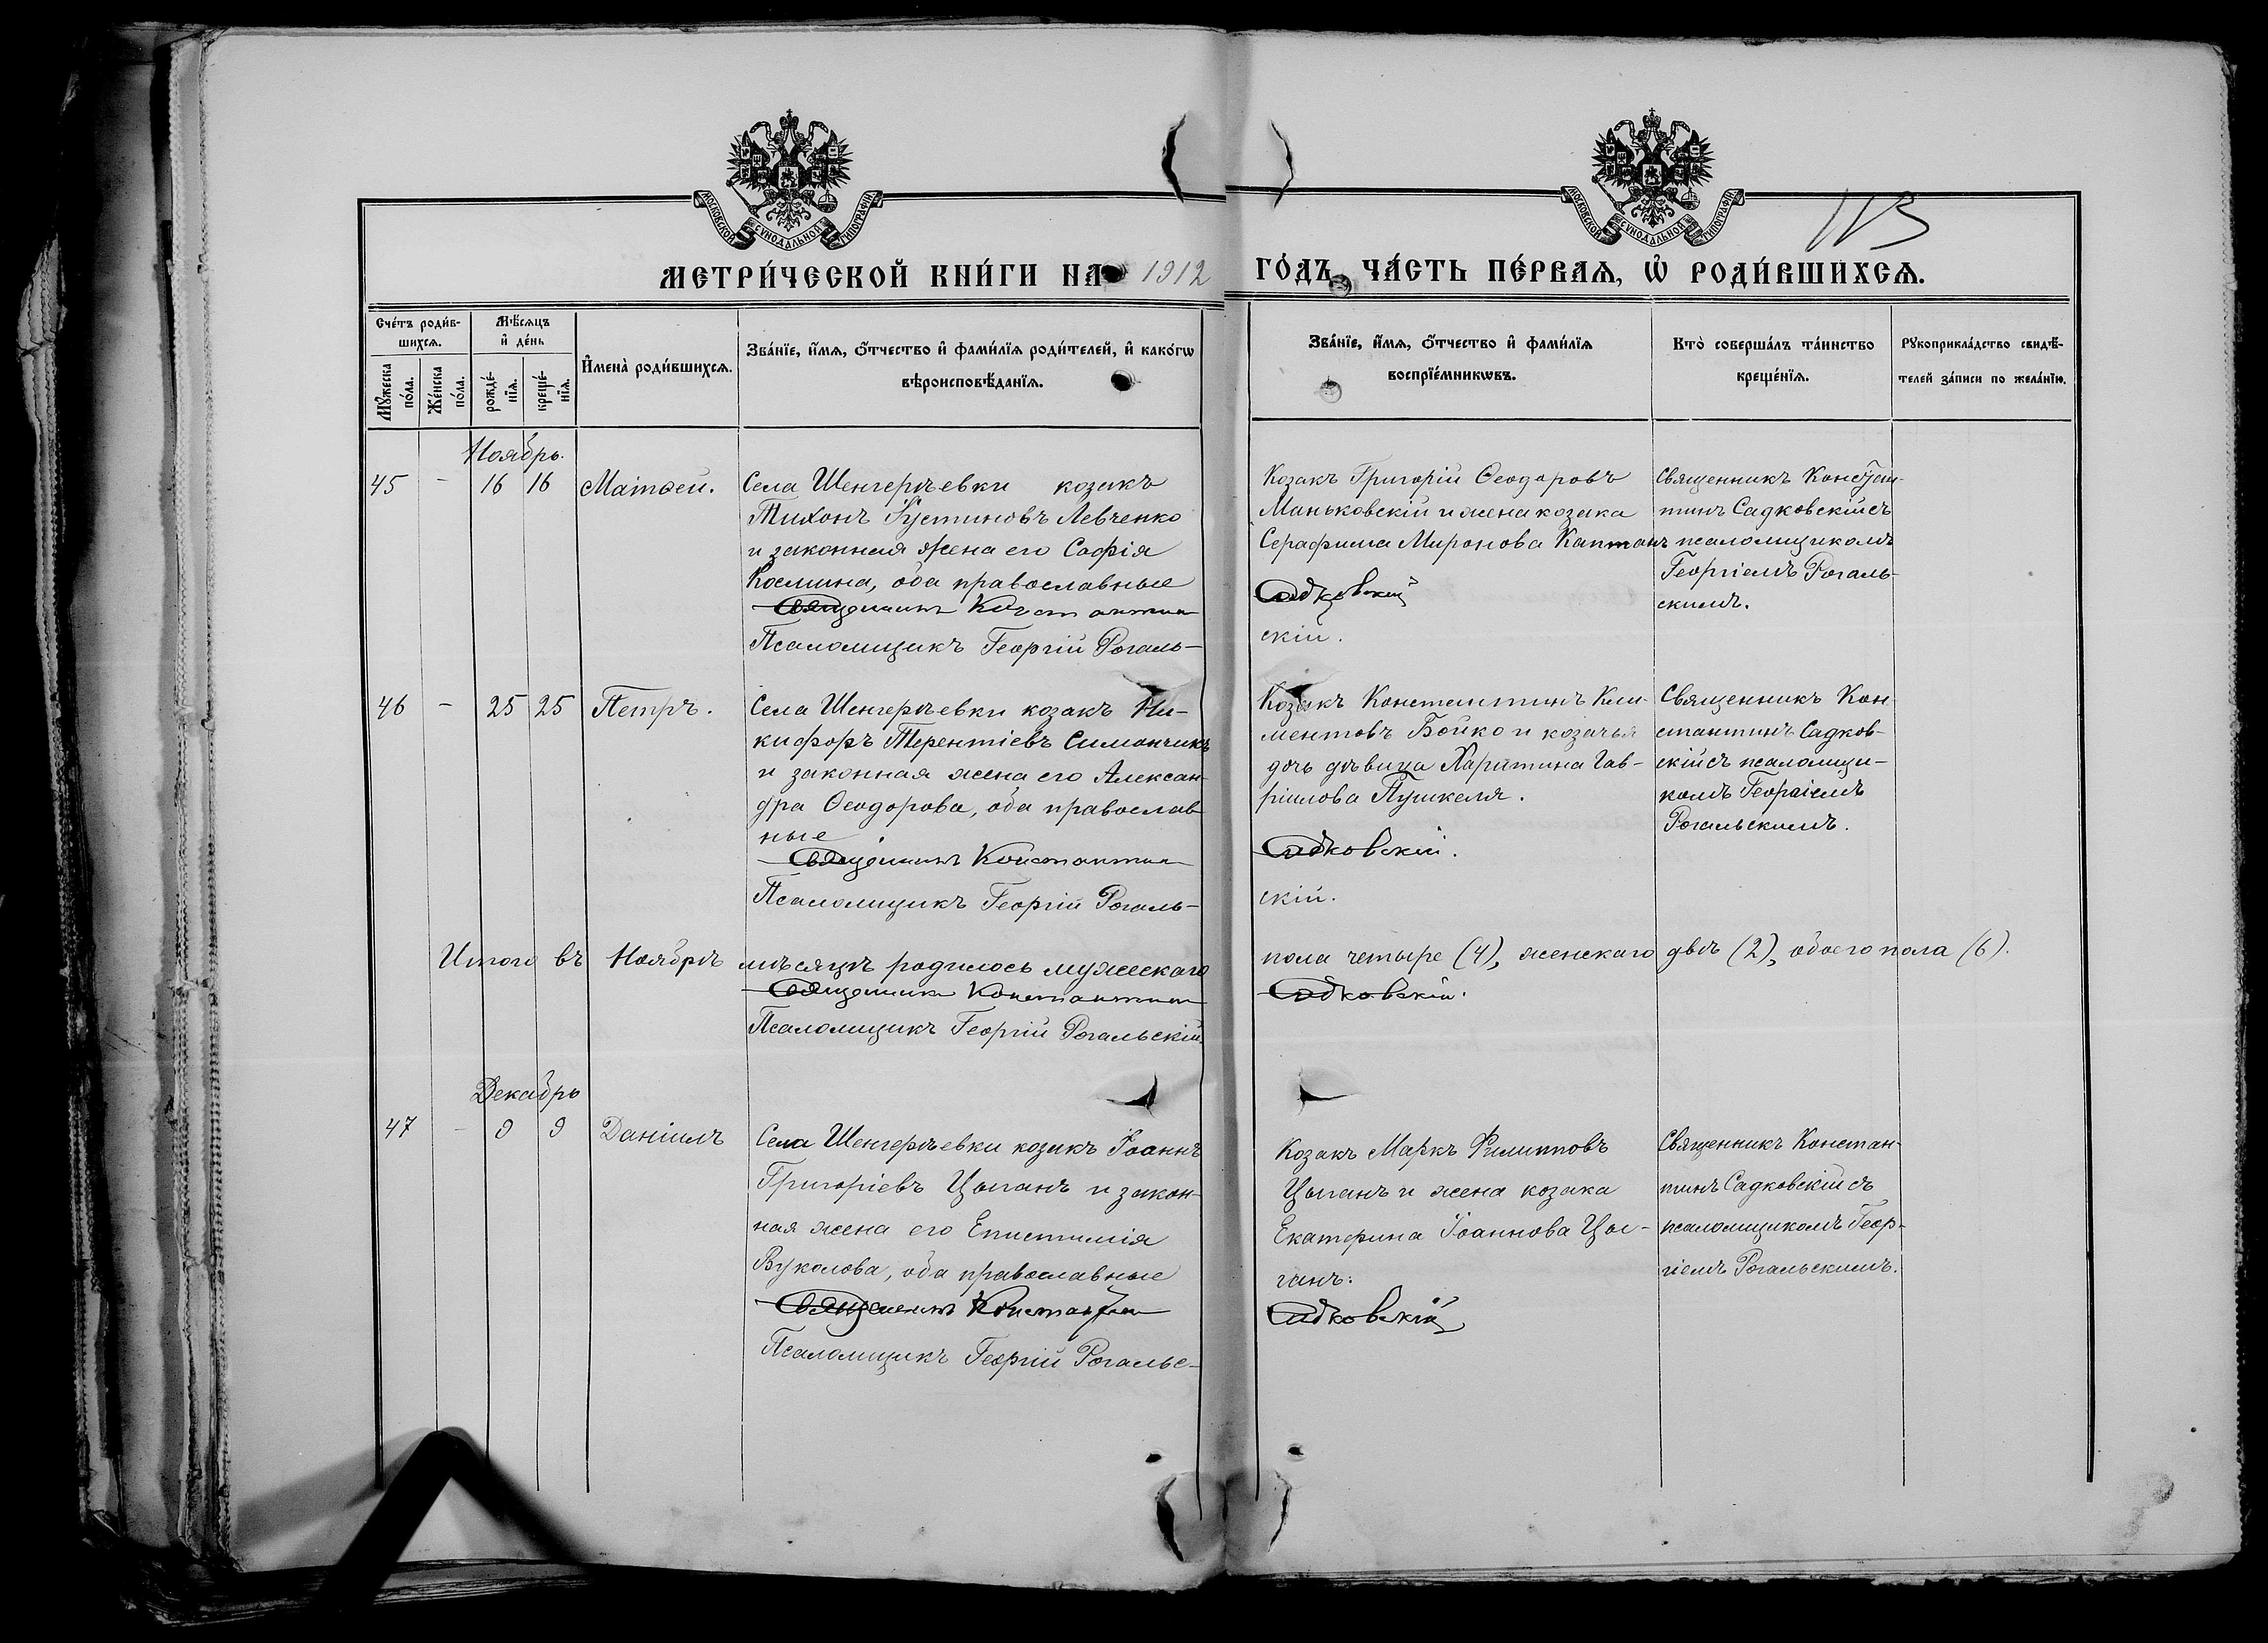 МОСКОВСКОЙ СѴНОДАЛЬНОЙ ТИПОГРАФІИ
МОСКОВСКОЙ СѴНОДАЛЬНОЙ ТИПОГРАФІИ
МЕТРИ́ЧЕСКОЙ КНИ́ГИ НА 1912 ГО́ДЪ, ЧА́СТЬ ПЕ́РВАѦ, Ѡ҆ РОДИ́ВШИХСѦ.
Сче́тъ роди́в-
шихсѧ.
Мꙋ́жеска по́ла.
Же́нска по́ла.
Мѣ́сѧцъ
и҆ де́нь
рожде́-
нїѧ.
креще́-
нїѧ.
И҆мена̀ роди́вшихсѧ.
Зва́нїе, и҆́мѧ, ѻ҆́тчество и҆ фами́лїѧ роди́телей, и҆ како́гѡ
вѣроисповѣ́данїѧ.
Зва́нїе, и҆́мѧ, ѻ҆́тчество и҆ фами́лїѧ
воспрїе́мникѡвъ.
Кто̀ соверша́лъ та́инство
креще́нїѧ.
Рꙋкоприкла́дство свидѣ́-
телей за́писи по жела́нїю.
Ноябрь.
45 - 16 16 Матѳей.
Села Шенгерѣевки козакъ
Тихонъ Іустиновъ Левченко
и законная жена его Софія
Космина, оба православные
Священникъ Константин
Псаломщикъ Георгій Рогаль-
Козакъ Григорій Ѳеодоровъ
Маньковскій и жена козака
Серафима Миронова Каптанъ
Садковскій
скій.
Священникъ Констан-
тинъ Садковскій съ
псаломщикомъ
Георгіемъ Рогаль-
скимъ.
46 - 25 25 Петръ.
Села Шенгерѣевки козакъ Ни-
кифоръ Терентіевъ Симончикъ
и законная жена его Алексан-
дра Ѳеодорова, оба православ-
ные
Священникъ Константин
Псаломщикъ Георгій Рогаль-
Козакъ Константинъ Кли-
ментовъ Бойко и козачья
дочь дѣвица Харитина Гав-
ріилова Пушкеля.
Садковскій.
скій.
Священникъ Кон-
стантинъ Садков-
скій съ псаломщи-
комъ Георгіемъ
Рогальскимъ.
Итого въ Ноябрѣ мѣсяцѣ родилось мужескаго пола четыре (4), женскаго двѣ (2), обоего пола (6).
Священникъ Константин Садковскій.
Псаломщикъ Георгій Рогальскій.
Декабрь
47 - 9 9 Даніилъ
Села Шенгерѣевки козакъ Іоаннъ
Григоріевъ Цыганъ и закон-
ная жена его Епистимія
Вуколова, оба православные
Священникъ Константин
Псаломщикъ Георгій Рогальс-
Козакъ Маркъ Филипповъ
Цыганъ и жена козака
Екатерина Іоаннова Цы-
ганъ.
Садковскій
Священникъ Констан-
тинъ Садковскій съ
псаломщикомъ Геор-
гіемъ Рогальскимъ.